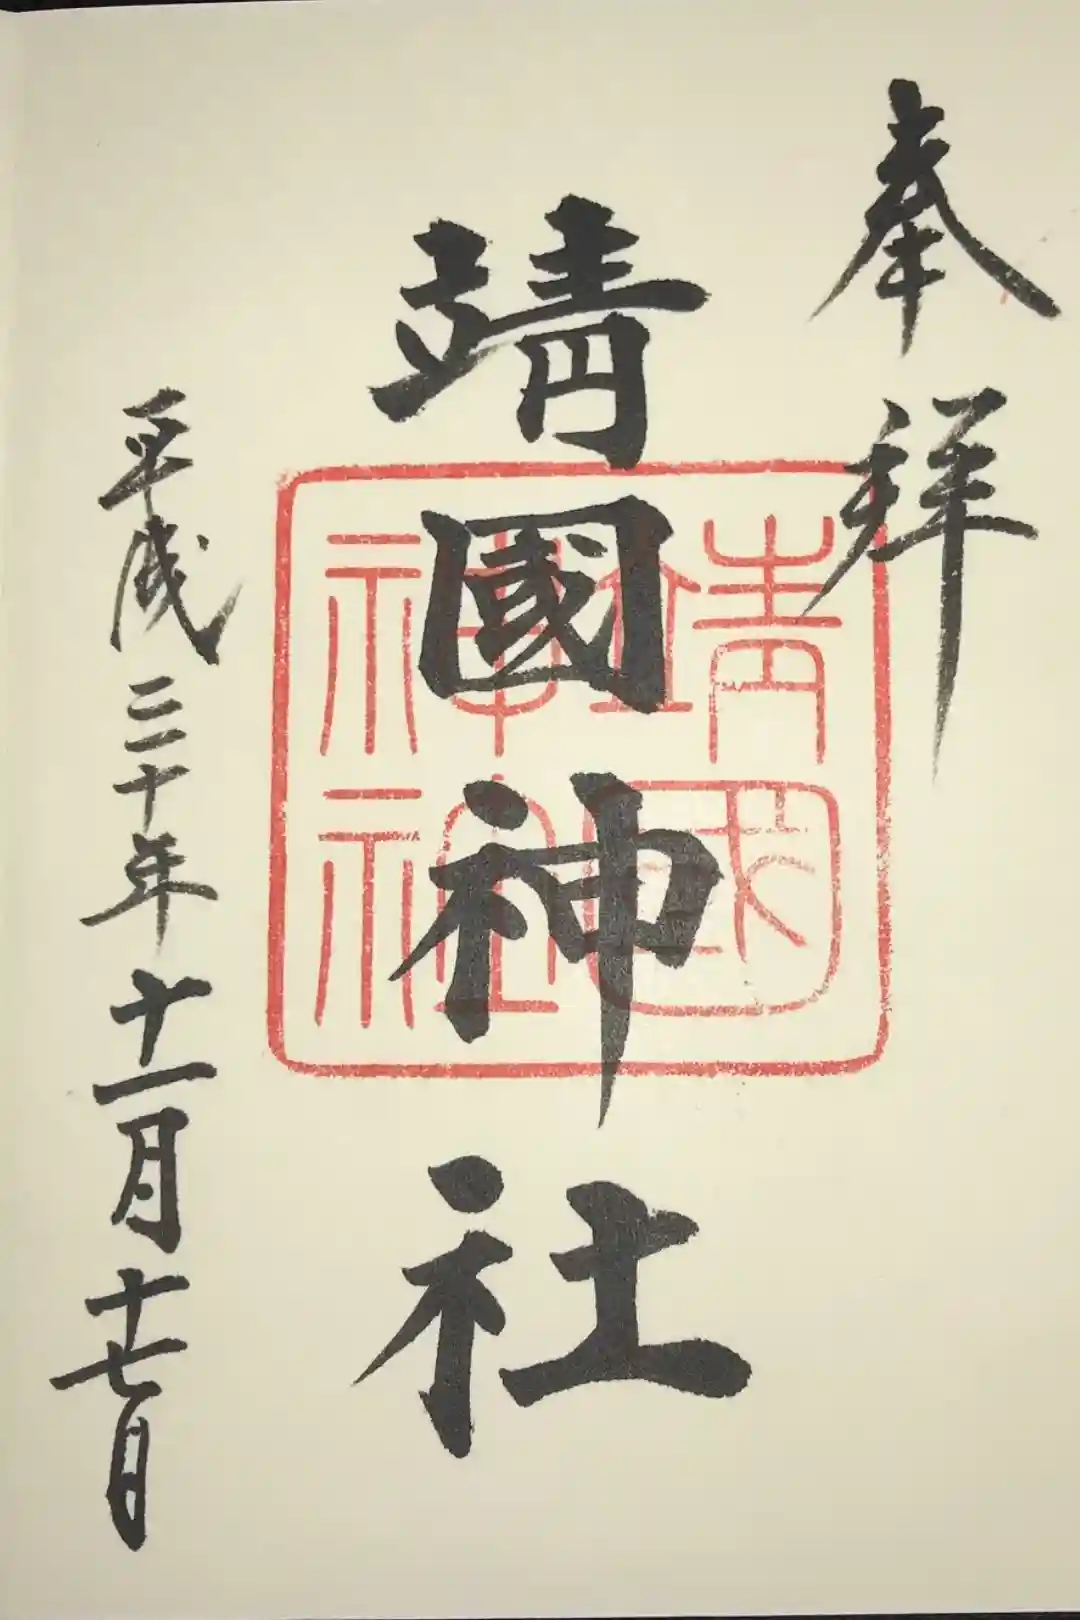 奉拝
靖國神社
靖國
神社
平成三十年十一月十七日